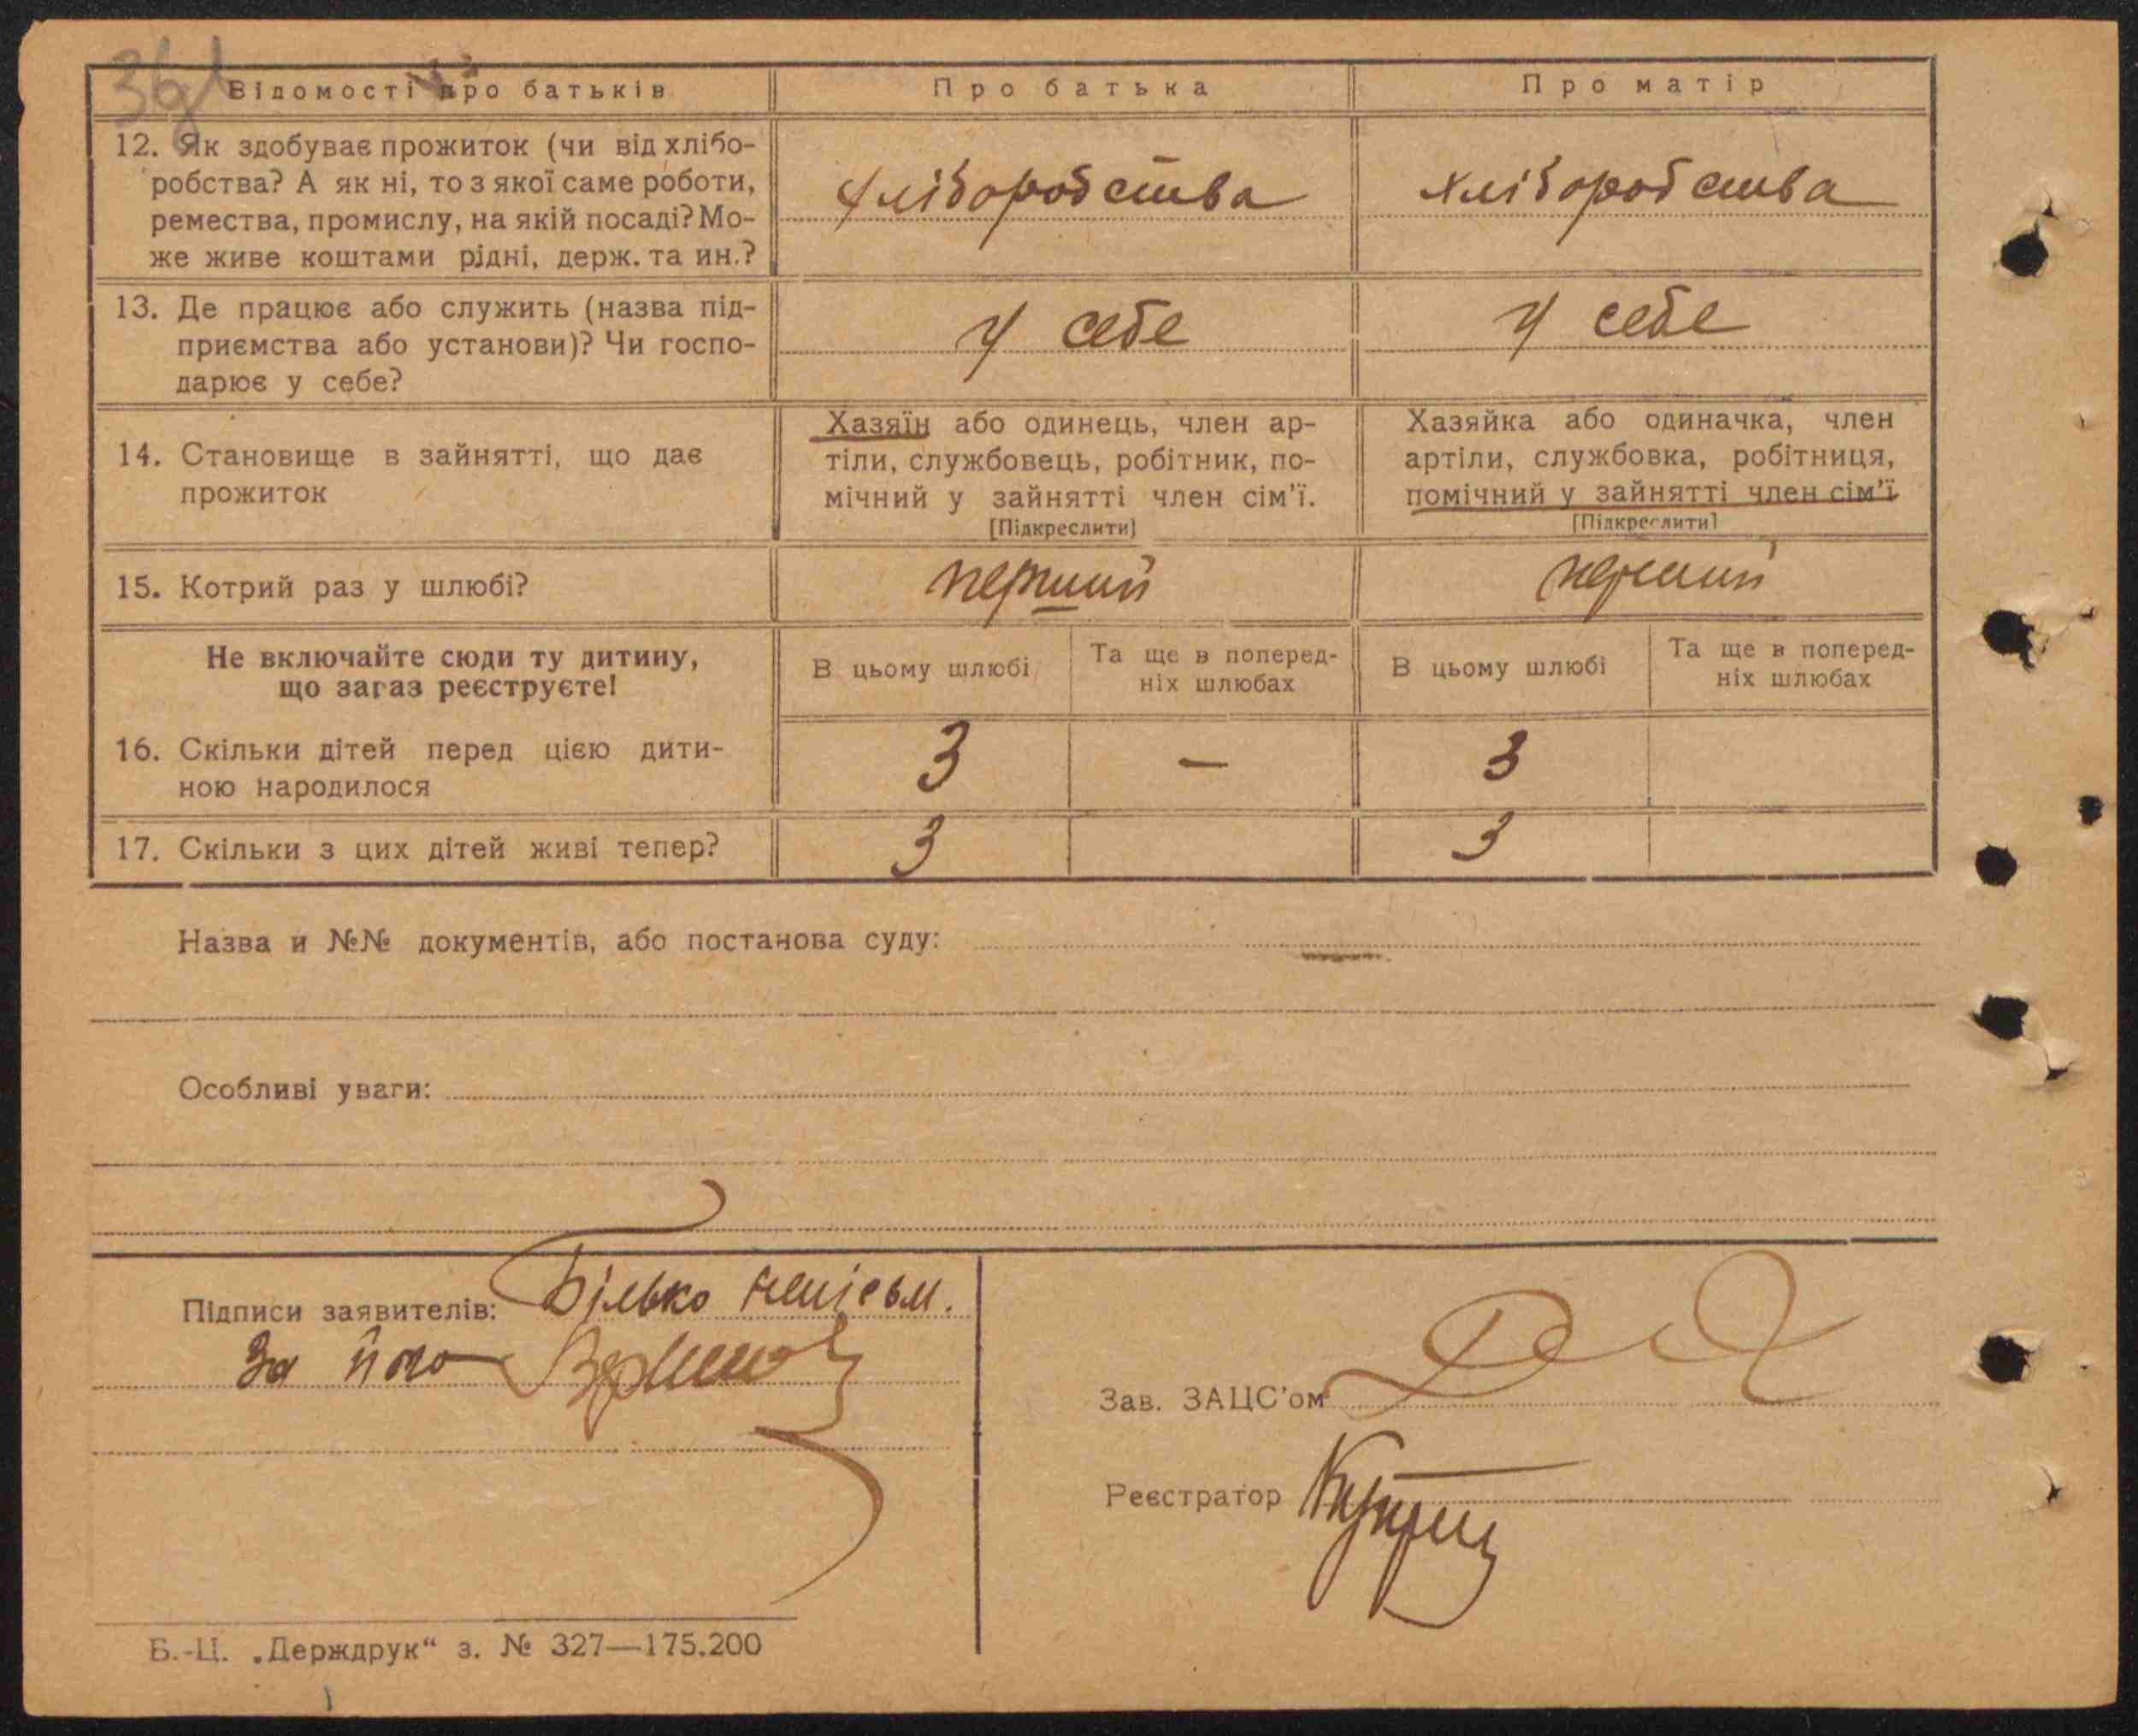 Відомості про батьків
Про батька
Про матір
12. Як здобуває прожиток (чи від хлібо-
робства? А як ні, то з якої саме роботи,
ремества, промислу, на якій посаді? Мо-
же живе коштами рідні, держ. та ин.?
хліборобства
хліборобства
13. Де працює або служить (назва під-
приємства або установи)? Чи госпо-
дарює у себе?
у себе
у себе
14. Становище в зайнятті, що дає
прожиток
Хазяїн або одинець, член ар-
тіли, службовець, робітник, по-
мічний у зайнятті член сім'ї.
[Підкреслити]
Хазяйка або одиначка, член
артіли, службовка, робітниця,
помічний у зайнятті член сім'ї
[Підкреслити]
15. Котрий раз у шлюбі?
перший
перший
Не включайте сюди ту дитину,
що зараз реєструєте!
В цьому шлюбі
Та ще в поперед-
ніх шлюбах
В цьому шлюбі
Та ще в поперед-
ніх шлюбах
16. Скільки дітей перед цією дити-
ною народилося
3
—
3
17. Скільки з цих дітей живі тепер?
3
3
Назва и №№ документів, або постанова суду:
Особливі уваги:
Підписи заявителів: Білько
За його
Зав. ЗАЦС'ом
Реєстратор
Б.-Ц. „Держдрук“ з. № 327—175.200